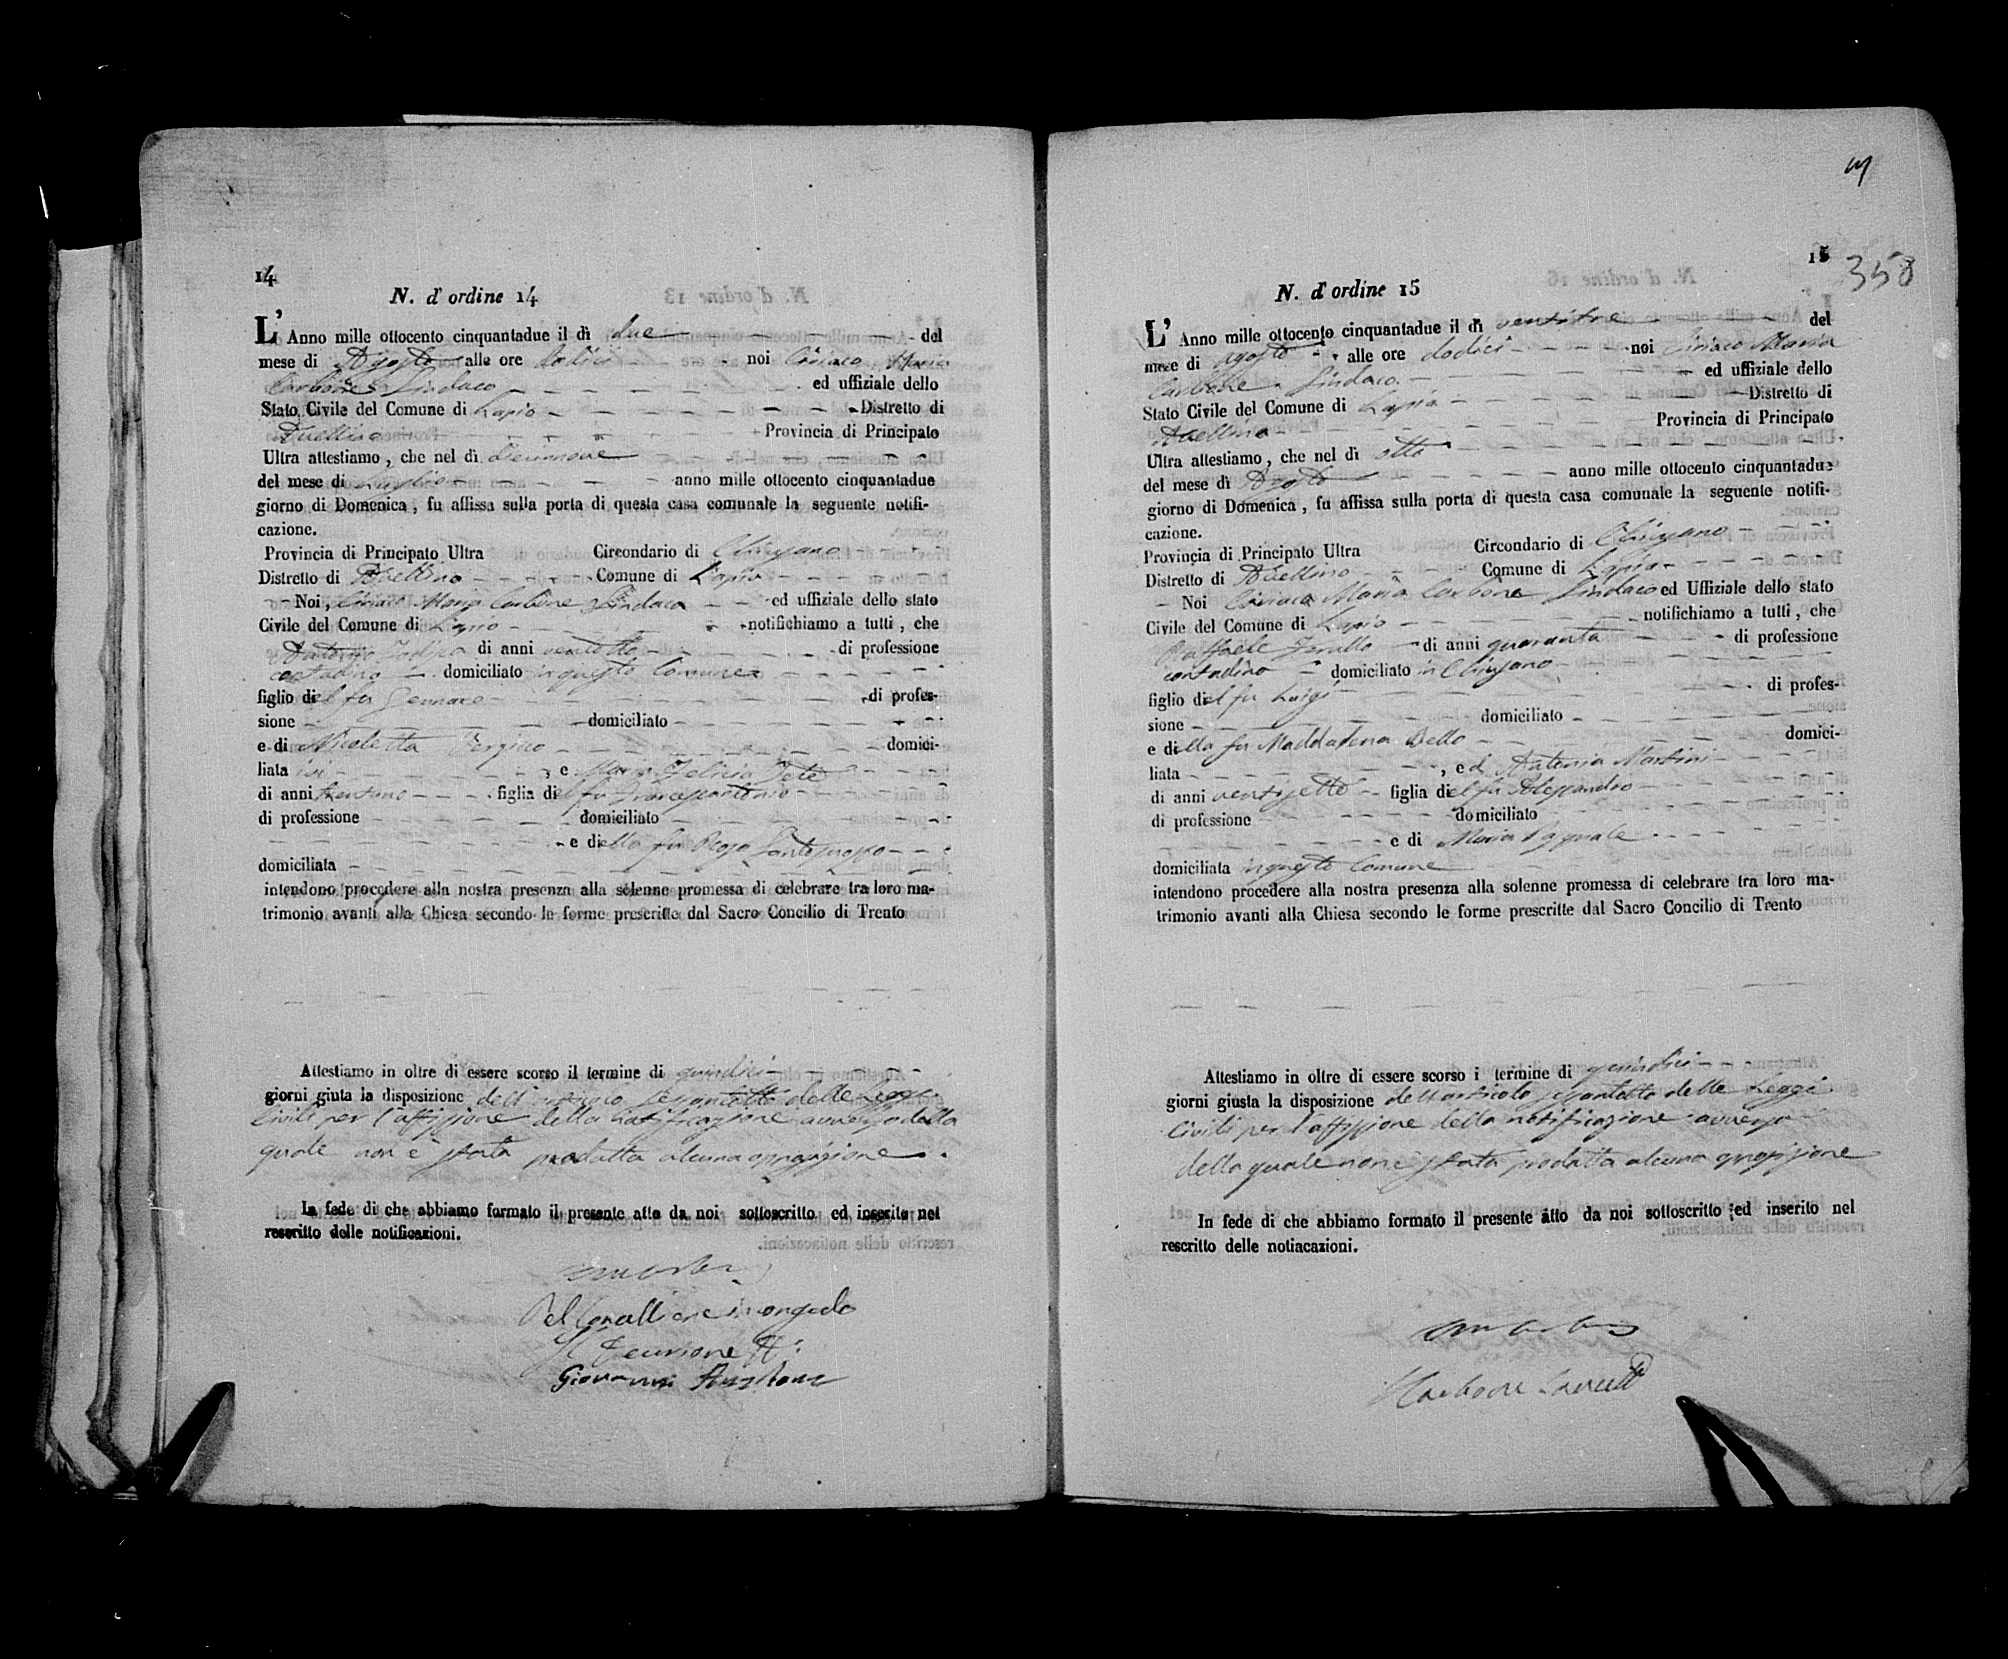 14
N. d' ordine 14
L' Anno mille ottocento cinquantadue il dì due del
mese di Agosto alle ore dodici noi Ciriaco Maria
Carbone Sindaco ed uffiziale dello
Stato Civile del Comune di Lapio Distretto di
Avellino Provincia di Principato
Ultra attestiamo, che nel dì diciannove
del mese di Luglio anno mille ottocento cinquantadue
giorno di Domenica, fu affissa sulla porta di questa casa comunale la seguente notifi-
cazione.
Provincia di Principato Ultra Circondario di Chiusano
Distretto di Avellino Comune di Lapio
Noi, Ciriaco Maria Carbone Sindaco ed uffiziale dello stato
Civile del Comune di Lapio notifichiamo a tutti, che
Antonio di anni ventotto di professione
contadino domiciliato in questo Comune
figlio del fu Gennaro di profes-
sione domiciliato
e di Nicoletta domici-
liata ivi, e Maria Felicia
di anni trentuno figlia del fu Francescantonio
di professione domiciliato
e della fu Rosa
domiciliata
intendono procedere alla nostra presenza alla solenne promessa di celebrare tra loro ma-
trimonio avanti alla Chiesa secondo le forme prescritte dal Sacro Concilio di Trento
Attestiamo in oltre di essere scorso il termine di quindici
giorni giuta la disposizione dell'articolo sessantotto delle Leggi
Civili per l'affissione della notificazione avverso della
quale non è stata prodotta alcuna opposizione.
In fede di che abbiamo formato il presente atto da noi sottoscritto ed inserito nel
rescritto delle notificazioni.
Pel Cancelliere in congedo
Il Decurione
Giovanni
15
358
N. d' ordine 15
L' Anno mille ottocento cinquantadue il dì ventitre del
mese di Agosto alle ore dodici noi Ciriaco Maria
Carbone Sindaco ed uffiziale dello
Stato Civile del Comune di Lapio Distretto di
Avellino Provincia di Principato
Ultra attestiamo, che nel dì otto
del mese di Agosto anno mille ottocento cinquantadue
giorno di Domenica, fu affissa sulla porta di questa casa comunale la seguente notifi-
cazione.
Provincia di Principato Ultra Circondario di Chiusano
Distretto di Avellino Comune di Lapio
Noi Ciriaco Maria Carbone Sindaco ed Uffiziale dello stato
Civile del Comune di Lapio notifichiamo a tutti, che
Raffaele di anni quaranta di professione
contadino domiciliato in Chiusano
figlio del fu Luigi di profes-
sione domiciliato
e della fu Maddalena Bello domici-
liata, ed Antonia Martini
di anni ventisette figlia del fu Alessandro
di professione domiciliato
e di Maria
domiciliata in questo Comune
intendono procedere alla nostra presenza alla solenne promessa di celebrare tra loro ma-
trimonio avanti alla Chiesa secondo le forme prescritte dal Sacro Concilio di Trento
Attestiamo in oltre di essere scorso i termine di quindici
giorni giusta la disposizione dell'articolo sessantotto delle Leggi
Civili per l'affissione della notificazione avverso
della quale non è stata prodotta alcuna opposizione
In fede di che abbiamo formato il presente atto da noi sottoscritto ed inserito nel
rescritto delle notiacazioni.